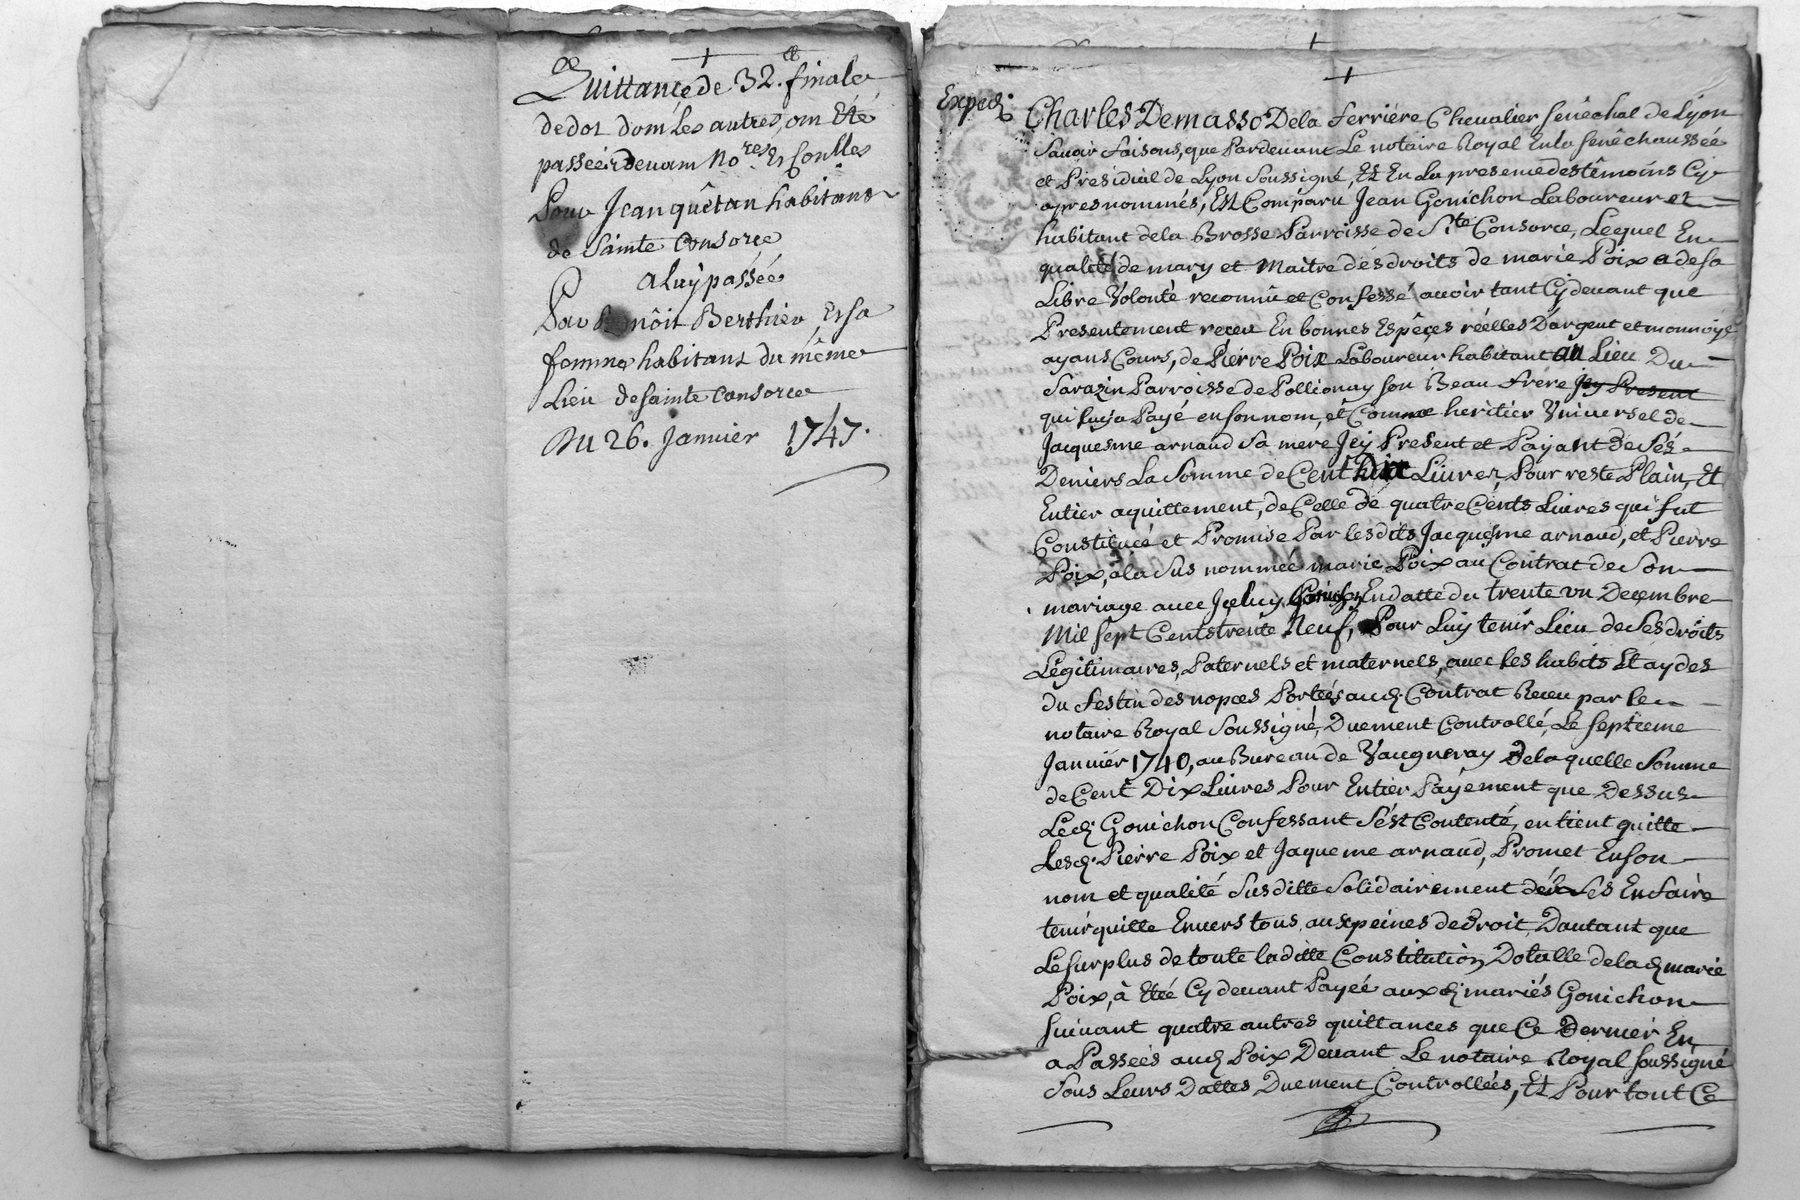 Quittance de 32.ᵗᵗ finale
de dot dont Les autres, ont Eté
passées devant No.res Et Con.llers
Pour Jean quêtan habitant
de Sainte Consorce
a Luy passée
Par Benôit Berthieu Et sa
femme habitans du même
Lieu de sainte Consorce
Du 26. Janvier 1747.
Exped.
Charles Demasso Dela ferriére Chevalier senêchal de Lyon
Savoir faisons, que Pardevant Le notaire Royal En la senêchaussée
et Presidial de Lyon Soussigné, Et En La presence des têmoins Cy
apres nommés, Est Comparu Jean Gonichon Laboureur et
habitant dela Brosse Parroisse de Ste Consorce, Lequel En
qualité de mary et Maitre des droits de marie Poix a de sa
Libre Volonté reconnû et Confessé avoir tant Cy devant que
Presentement receu En bonnes Espêçes réelles D'argent et monnoye
ayans Cours, de Pierre Poix Laboureur habitant au Lieu Du
Sarazin Parroisse de Pollionay son Beau frére Jcy Present
qui Luy a Payé en son nom, et Comme heritier Vniversel de
Jacquesme arnaud Sa mere Jcy Present et Payant de Sés
Deniers La Somme de Cent Dix Livres, Pour reste Plain, Et
Entier aquittement, de Celle de quatre Cents Livres qui fut
Constituée et Promise Par lesdits Jacquesme arnaud, et Pierre
Poix, à la Sus nommée marie Poix au Contrat de Son
mariage avec Jceluy Gonichon En datte du trente vn Decembre
Mil Sept Cents trente Neuf, Pour Luy tenir Lieu de Ses droits
Légitimaires, Paternels et maternels, avec les habits Et aydes
du festin des nopces Portées aud. Contrat Receu par le
notaire Royal Soussigné, Duement Controllé, Le Septieme
Janvier 1740, au Bureau de Vaugneray De laquelle Somme
de Cent Dix Livres Pour Entier Payement que Dessus
Led. Gonichon Confessant S'ést Contenté, en tient quitte
Lesd. Pierre Poix et Jaqueme arnaud, Promet En son
nom et qualité Susditte Solidairement Les En faire
tenir quitte Envers tous aux peines de droit, D'autant que
Le surplus de toute laditte Constitution Dotalle de lad. marie
Poix, à Eté Cy devant Payée aux d. mariés Gonichon
suivant quatre autres quittances que Ce Dernier En
a Passées aud. Poix Devant Le notaire Royal soussigné
Sous Leurs Dattes Duement Controllées, Et Pour tout Ce